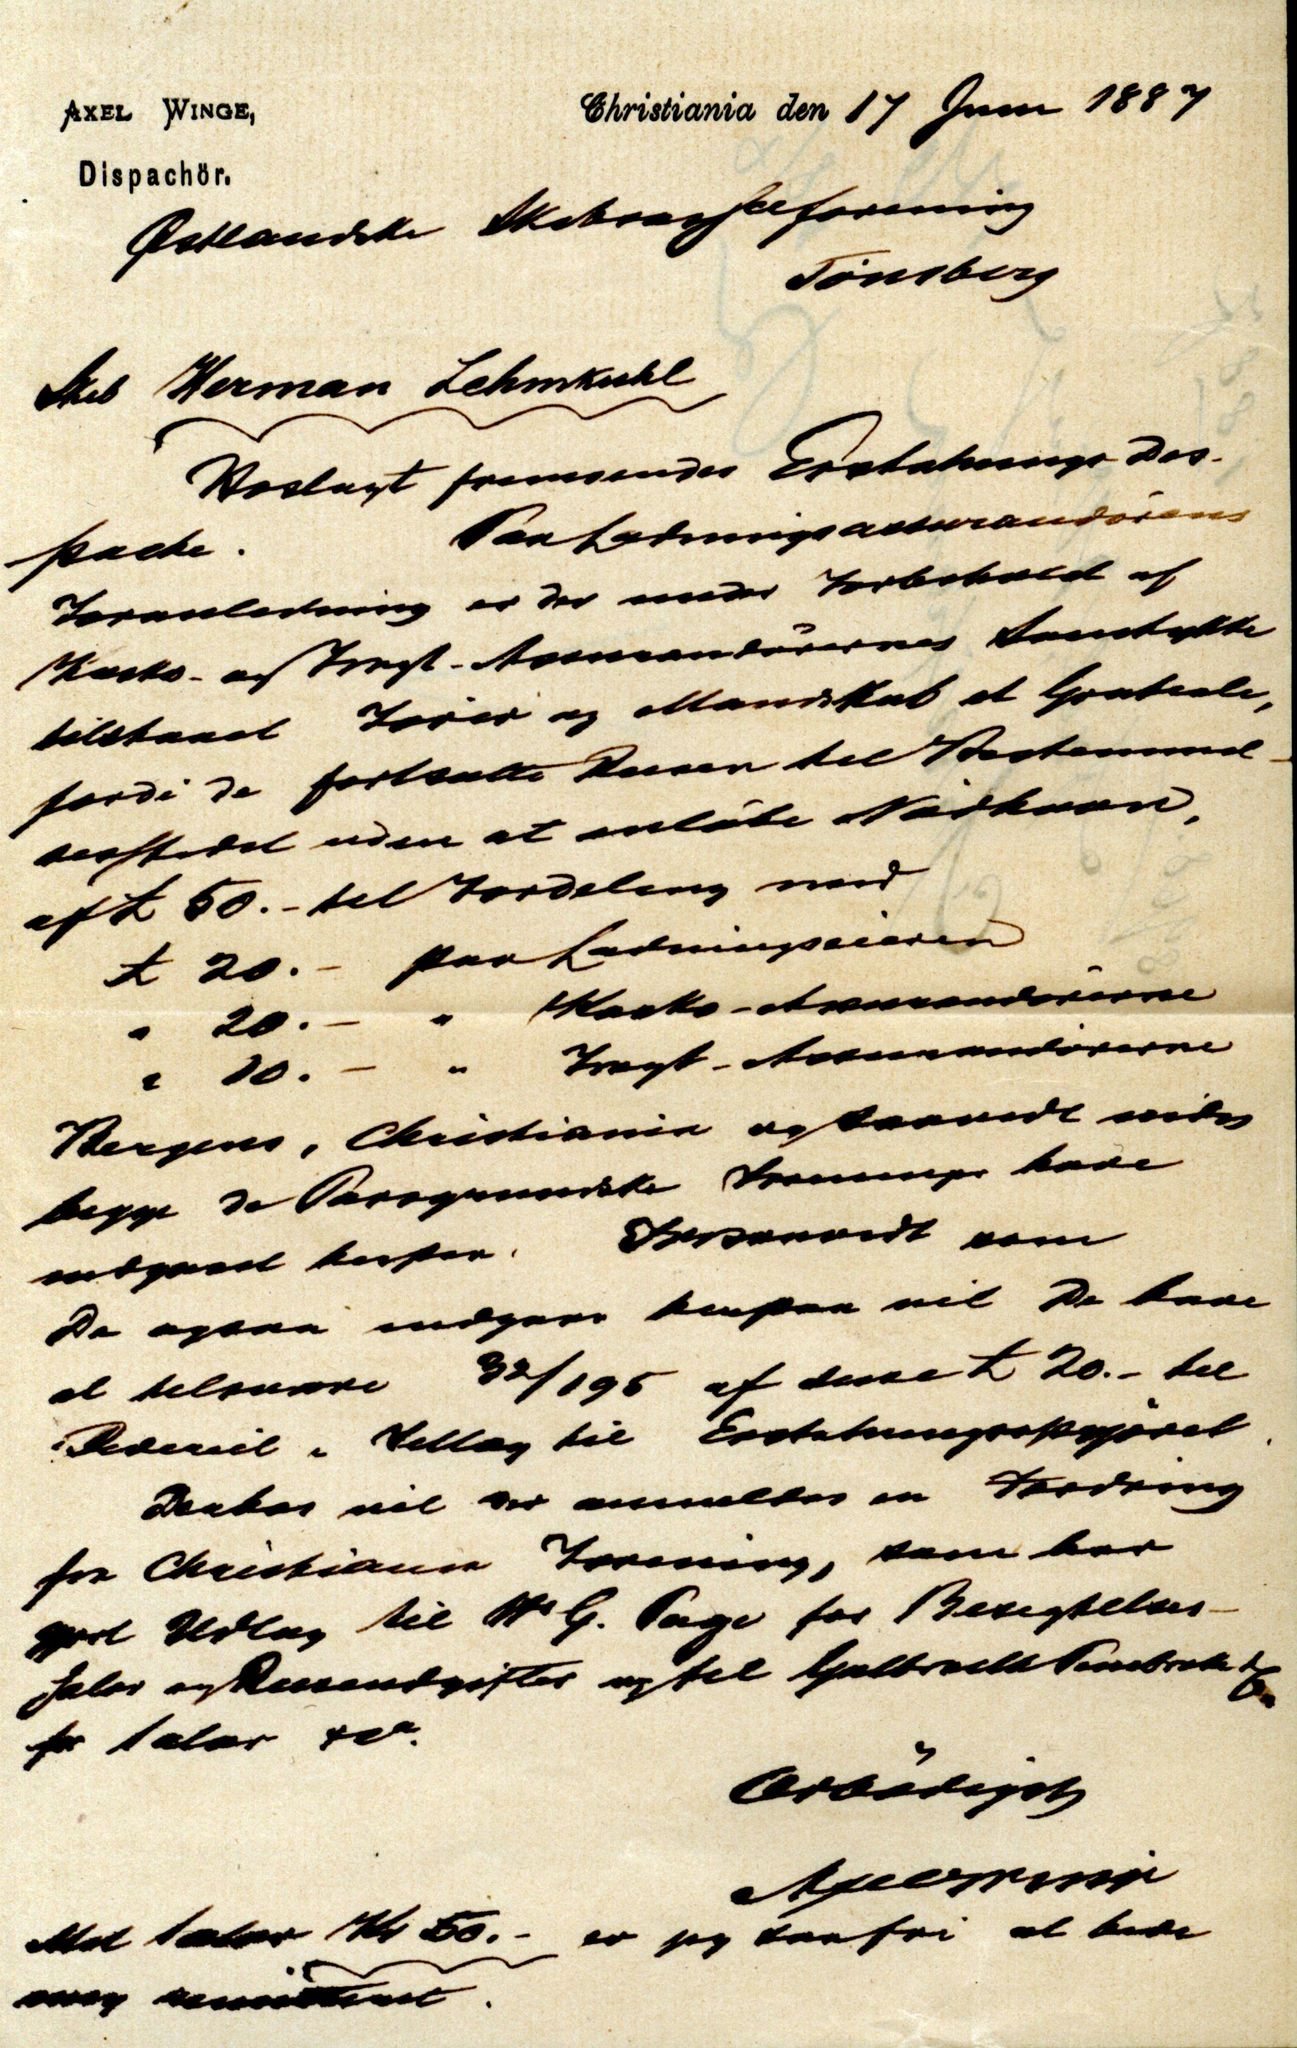 AXEL WINGE,
Dispachör.
Christiania den 17 Juni 1887
Østlandske Skibsassceforening
Tönsberg
Skib Herman Lehmkuhl
Vedlagt fremsendes Erstatnings Des-
pache. Paa Ladningsassurandörens
Foranledning er der under Forbehold af
Kasko- og Fragt-Assurandörernes Samtykke
tilstaaet Förer og Mandskab et Gratiale,
fordi de fortsatte Reisen til Bestemmel-
sesstedet uden at anløbe Nödhavn,
af £ 50.- til Fordeling med
£ 20.- paa Ladningseieren
" 20.- " Kasko-Assurandörerne
" 10.- " Fragt-Assurandörerne
Bergens, Christiania og saavidt vides
begge de Porsgrundske Foreninger have
indgaaet herpaa. Forsaavidt som
De ogsaa indgaar herpaa vil De have
at tilsvare 32/195 af disse £ 20.- til
Rederiet i Tillæg til Erstatningsopgjöret.
Derhos vil der anmeldes en Fordring
fra Christiania Forening, som har
gjort Udlag til W. G. Page for Besigtelses-
Salær og Reiseudgifter og til Galbraith Pembroke & Co
for Salær &c.
Ærbödigst
Axel Winge
Mit Salær Kr 50.- er jeg saa fri at bede
mig remitteret.